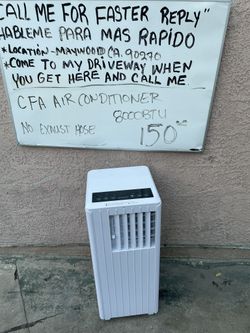 CALL ME FOR FASTER REPLY"
HABLEME PARA MAS RAPIDO
*LOCATION-MAYWOOD CA. 90270
*COME TO MY DRIVEWAY WHEN
YOU GET HERE AND CALL ME
CFA AIR CONDITIONER
8000BTU
NO EXHUST HOSE
150